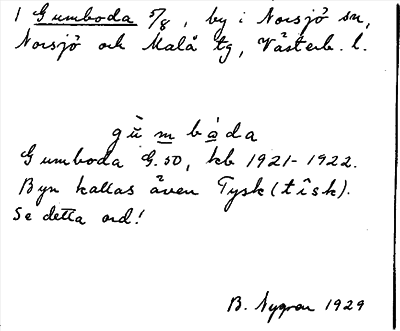 1 Gumboda 5/8, by i Norsjö sn,
Norsjö och Malå tg, Västerb. l.
gùmbàda
Gumboda G.50, kb 1921-1922.
Byn kallas även Tysk (tîsk).
Se detta ord!
B. Nygren 1929